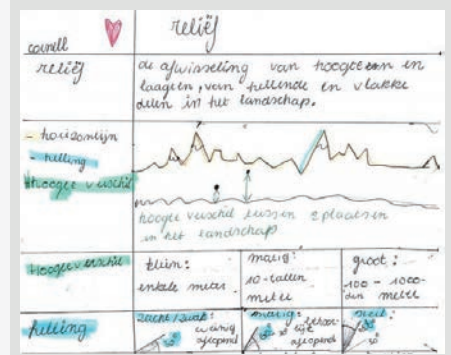 reliëf
cornell
reliëf
de afwisseling van hoogte en
laagten, van hellende en vlakke
delen in het landschap.
- horizonlijn
- helling
#hoogteverschil
hoogte verschil tussen 2 plaatsen
in het landschap
Hoogteverschil
klein:
enkele meter
matig:
10-tallen
meter
groot:
100 - 1000-
den meter
helling
zacht/zwak:
weinig
aflopend
matig:
aflopend
steil: